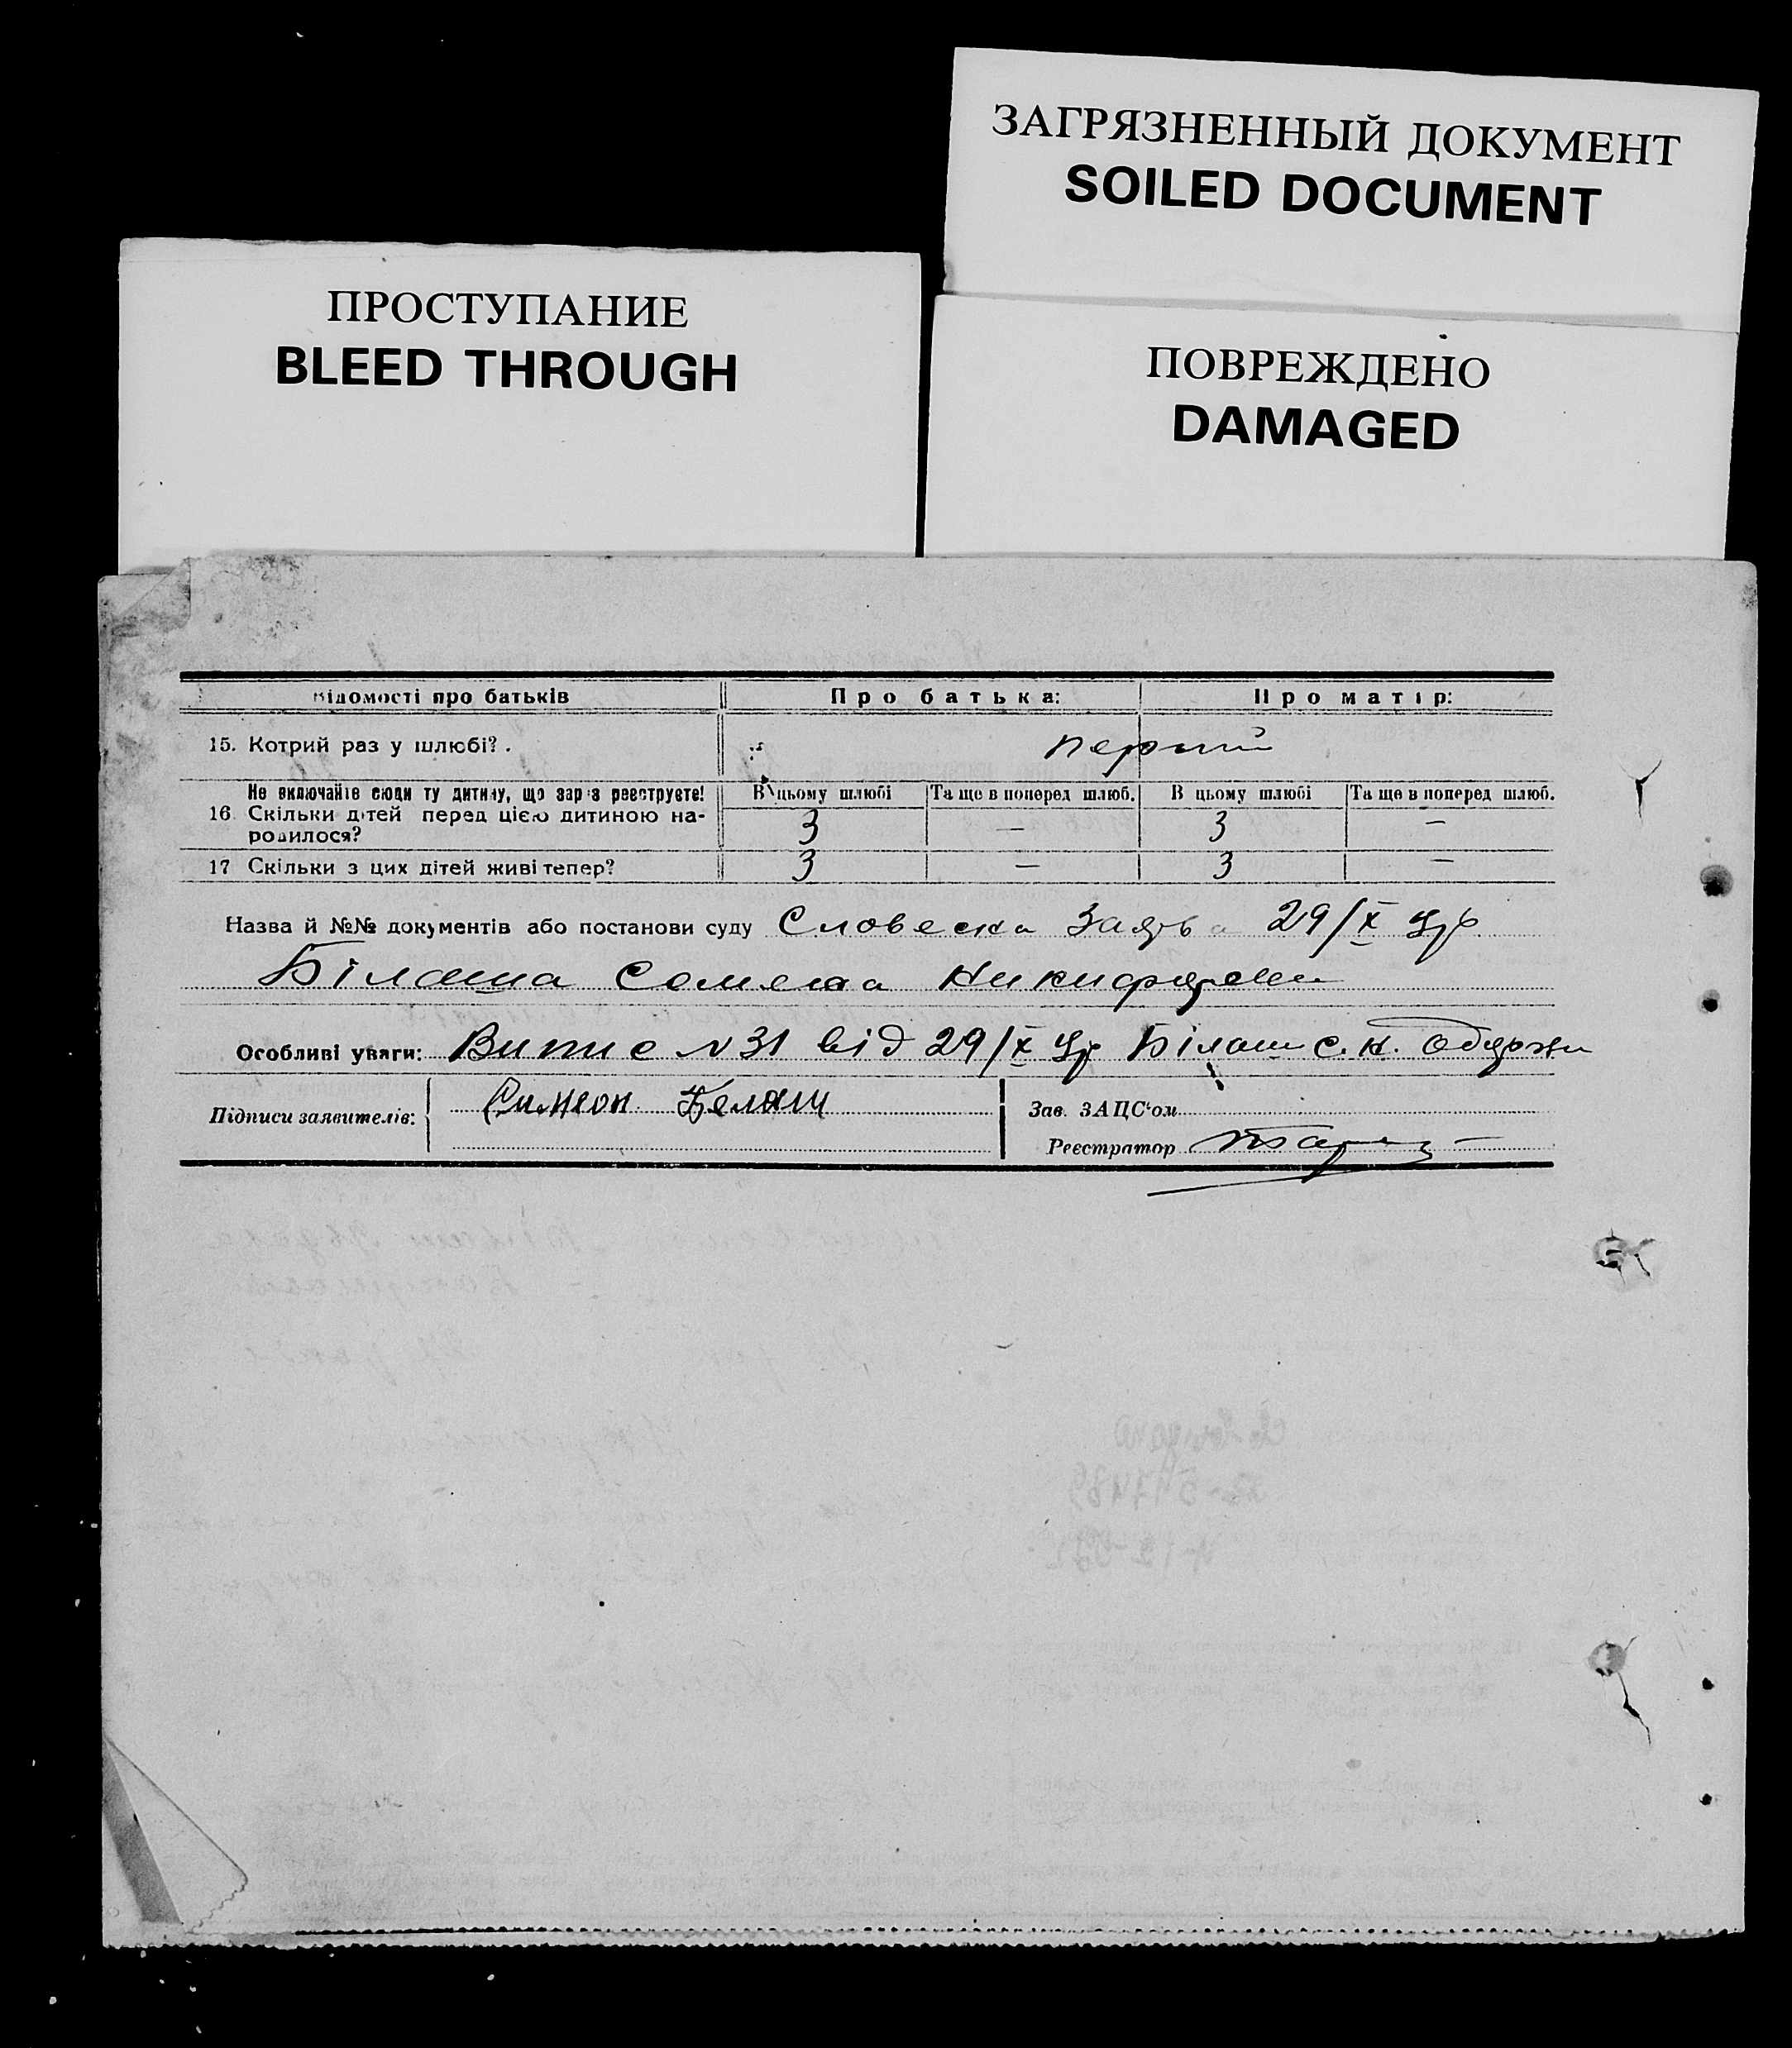 ЗАГРЯЗНЕННЫЙ ДОКУМЕНТ
SOILED DOCUMENT
ПРОСТУПАНИЕ
BLEED THROUGH
ПОВРЕЖДЕНО
DAMAGED
Відомості про батьків Про батька: Про матір:
15. Котрий раз у шлюбі? . перший
Не включайте сюди ту дитину, що зараз реєструєте! В цьому шлюбі Та ще в поперед шлюб. В цьому шлюбі Та ще в поперед шлюб.
16. Скільки дітей перед цією дитиною на-
родилося? 3 — 3 —
17 Скільки з цих дітей живі тепер? 3 — 3 —
Назва й №№ документів або постанови суду Словесна Заява 29/X
Білаша Семена
Особливі уваги: Випис N 31 від 29/X Білаш С. Н.
Підписи заявителів: Симеон Белаш
Зав. ЗАЦС'ом
Реєстратор